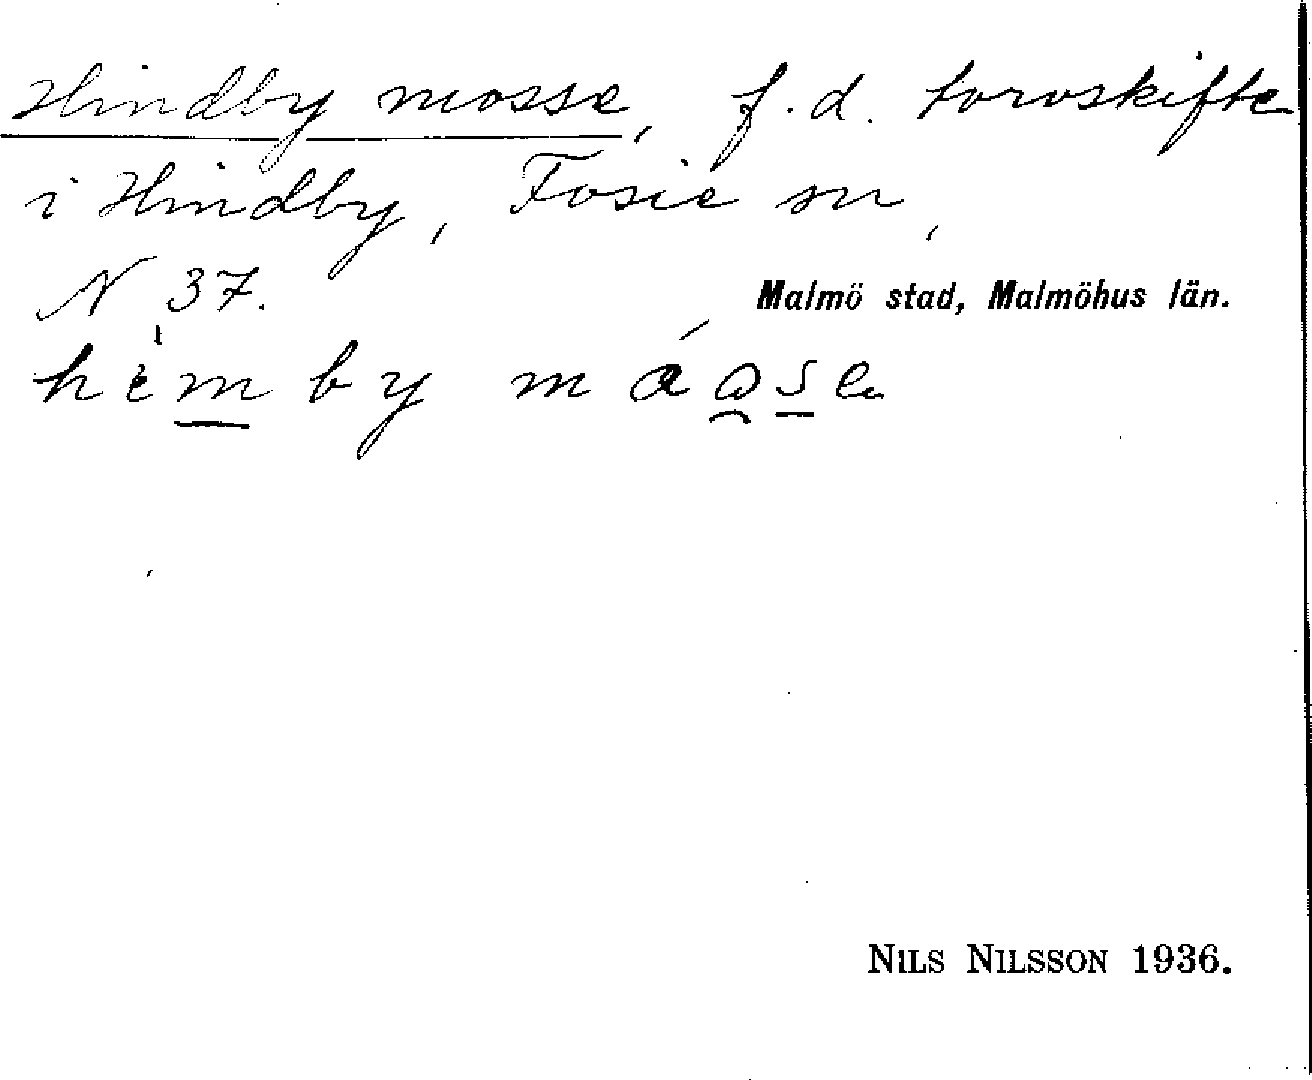 Hindby mosse, f.d. torvskifte
i Hindby, Fosie sn,
N 37.
Malmö stad, Malmöhus län.
hèm by
NILS NILSSON 1936.